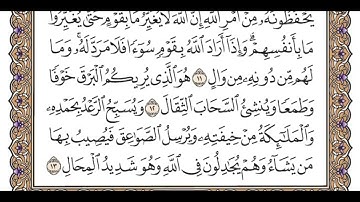 يَحْفَظُونَهُۥ مِنْ أَمْرِ ٱللَّهِ إِنَّ ٱللَّهَ لَا يُغَيِّرُ مَا بِقَوْمٍ حَتَّىٰ يُغَيِّرُوا۟
مَا بِأَنفُسِهِمْ ۗ وَإِذَآ أَرَادَ ٱللَّهُ بِقَوْمٍ سُوٓءًا فَلَا مَرَدَّ لَهُۥ ۚ وَمَا
لَهُم مِّن دُونِهِۦ مِن وَالٍ ١١ هُوَ ٱلَّذِى يُرِيكُمُ ٱلْبَرْقَ خَوْفًا
وَطَمَعًا وَيُنشِئُ ٱلسَّحَابَ ٱلثِّقَالَ ١٢ وَيُسَبِّحُ ٱلرَّعْدُ بِحَمْدِهِۦ
وَٱلْمَلَـٰٓئِكَةُ مِنْ خِيفَتِهِۦ وَيُرْسِلُ ٱلصَّوَٰعِقَ فَيُصِيبُ بِهَا
مَن يَشَآءُ وَهُمْ يُجَـٰدِلُونَ فِى ٱللَّهِ وَهُوَ شَدِيدُ ٱلْمِحَالِ ١٣